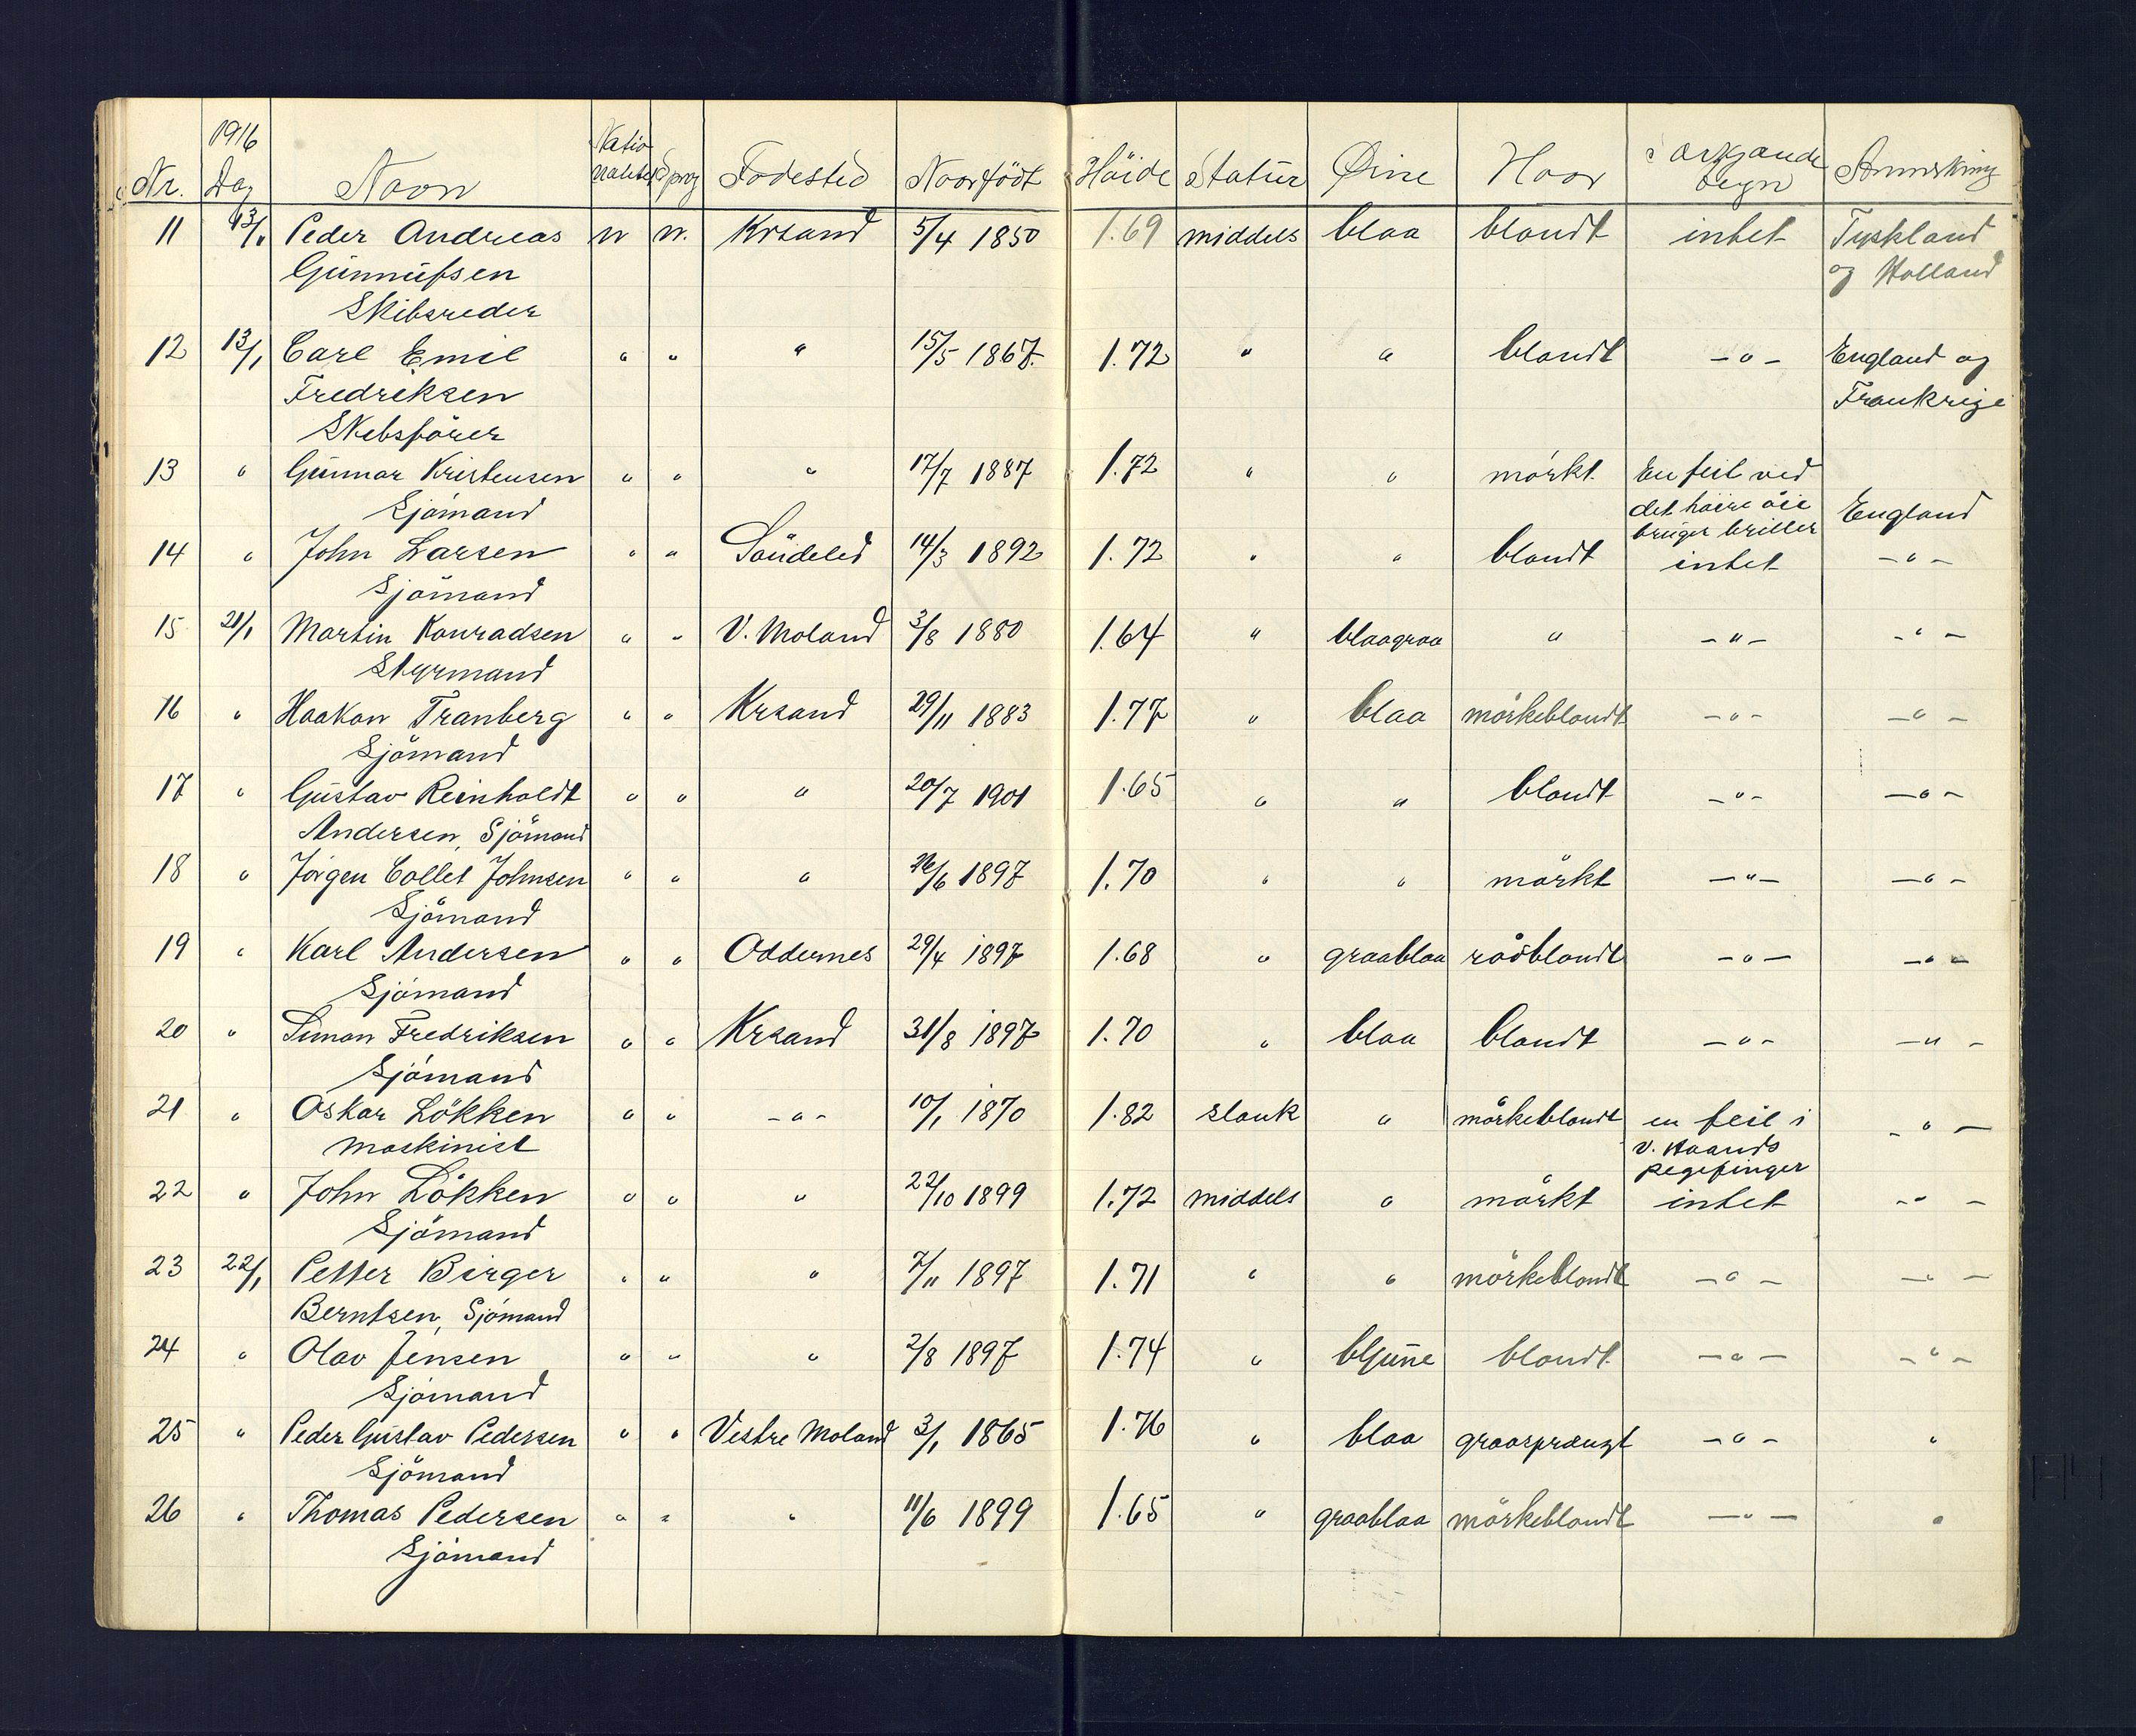 1916
Nr. Dag Navn Natio nalitet Sprog Fødested Naar født Høide Statur Øine Haar særgaande tegn Anmerkning
11 13/1 Peder Andreas n n. Krsand 5/4 1850 1.69 middels blaa blondt intet Tyskland
Gunnufsen og Holland
Skibsreder
12 13/1 Carl Emil " " " 15/5 1867. 1.72 " " blondt -"- England og
Fredriksen Frankrige
Skibsfører
13 " Gunnar Kristensen " " " 17/7 1887 1.72 " " mörkt. En feil ved
Sjömand det höire öie England
bruger briller
14 " John Larsen " " Söndeled 14/3 1892 1.72 " " blondt intet -"-
Sjömand
15 21/1 Martin Konradsen " " V. Moland 3/8 1880 1.64 " blaagraa " -"- -"-
Styrmand
16 " Haakon Tranberg " " Krsand 29/11 1883 1.77 " blaa mörkeblondt -"- -"-
Sjömand
17 " Gustav Reinholdt " " " 20/7 1901 1.65 " " blondt -"- -"-
Andersen, Sjömand
18 " Jörgen Collet Johnsen " " " 26/6 1897 1.70 " " mörkt -"- -"-
Sjömand
19 " Karl Andersen " " Oddernes 29/4 1897 1.68 " graablaa rödblondt -"- -"-
Sjömand
20 " Simon Fredriksen " " Krsand 31/8 1897 1.70 " blaa blondt -"- -"-
Sjömand
21 " Oskar Lökken " " -"- 10/1 1870 1.82 slank " mörkeblondt en feil i -"-
Maskinist v. Haands
pegefinger
22 " John Lökken " " " 22/10 1899 1.72 middels " mörkt intet -"-
Sjömand
23 22/1 Petter Birger " " " 7/11 1897 1.71 " " mörkeblondt -"- -"-
Berntsen, Sjömand
24 " Olav Jensen " " " 2/8 1897 1.74 " blondt -"- -"-
Sjömand
25 " Peder Gustav Pedersen " " Vestre Moland 3/1 1865 1.76 " blaa graasprængt -"- "
Sjömand
26 " Thomas Pedersen " " " 11/6 1899 1.65 " graablaa mörkeblondt -"- "
Sjömand